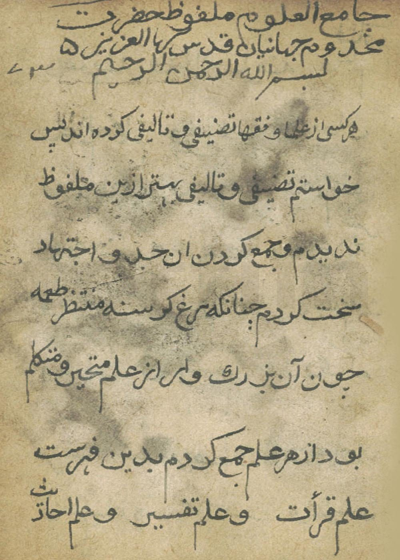 جامع العلوم ملفوظ حضرت
مخدوم جهانیان قدس سره العزیز ۵
بسم الله الرحمن الرحیم
هر کسی از علما و فقها تصنیفی و تالیفی کرده اند پس
خواستم تصنیفی و تالیفی بهتر ازین ملفوظ
ندیدم و جمع کردن ان جد و اجتهاد
سخت کردم چنانکه مرغ کرسنه منتظر طعمه
چون آن بزرك وار از علم متحیر و متکلم
بود از هر علم جمع کردم بدین فهرست
علم قرأت وعلم تفسیر وعلم احادیث